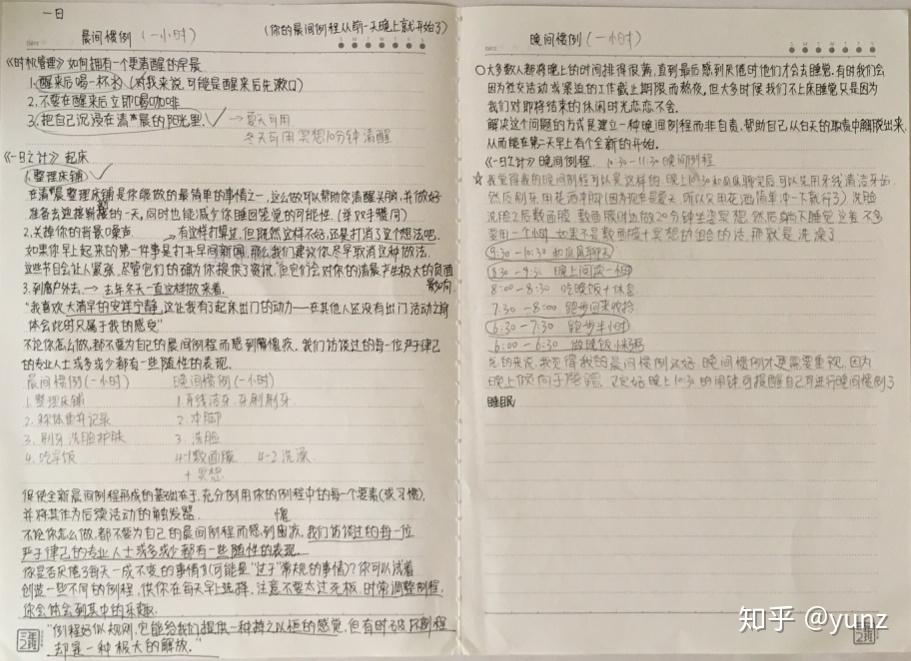 一日
晨间惯例（一小时）
（你的晨间例程从前一天晚上就开始了）
《时机管理》如何拥有一个更清醒的早晨
1.醒来后喝一杯水（对我来说可能是醒来后先漱口）
2.不要在醒来后立即喝咖啡
3.把自己沉浸在清晨的阳光里. → 夏天可用
冬天可用冥想10分钟清醒
《一日之计》起床
1.整理床铺
在清晨整理床铺是你能做的最简单的事情之一,这么做可以帮助你清醒头脑,并做好
准备去迎接新的一天,同时也能减少你睡回笼觉的可能性.
2.关掉你的背景噪声 → 有这样打算过,但既然这样不好,还是打消了这个想法吧.
如果你早上起来的第一件事是打开早间新闻,那么我们建议你尽早取消这种做法.
这些节目会让人紧张,尽管它们的确为你提供了资讯,但它们会对你的清晨产生极大的负面
影响.
3.到户外去. → 去年冬天一直这样做来着.
“我喜欢大清早的安详宁静,这让我有了起床出门的动力——在其他人还没有出门活动之前
体会此时只属于我的感受”
不论你怎么做,都不要为自己的晨间例程而感到懊悔疚.我们访谈过的每一位严于律己
的专业人士或多或少都有一些随性的表现.
晨间惯例（一小时） 晚间惯例（一小时）
1.整理床铺 1.牙线洁牙.牙刷刷牙.
2.躯体重并记录 2.冲脚
3.刷牙洗脸护肤 3.洗脸
4.吃早饭 4-1敷面膜 4-2洗澡
+冥想
促使全新晨间例程形成的基础在于,充分利用你的例程中的每一个要素（或习惯),
并将其作为后续活动的触发器.
不论你怎么做,都不要为自己的晨间例程而感到愧疚,我们访谈过的每一位
严于律己的专业人士或多或少都有一些随性的表现.
你是否厌倦了每天一成不变的事情了（可能是“过于”常规的事情)?你可以试着
创造一些不同的例程,供你在每天早上选择,注意不要太过死板,时常调整例程,
你会体会到其中的乐趣.
“例程好似规则,它能给我们提供一种持之以恒的感觉,但有时破坏例程
却是一种极大的解放.”
晚间惯例（一小时）
○大多数人都将晚上的时间排得很满,直到最后感到厌倦时他们才会去睡觉.有时我们会
因为社交活动或紧迫的工作截止期限而熬夜,但大多时候我们不上床睡觉只是因为
我们对即将结束的休闲时光恋恋不舍.
解决这个问题的方式是建立一种晚间例程而非自责,帮助自己从白天的职责中解脱出来,
从而能在第二天早上有个全新的开始.
《一日之计》晚间例程. 10:30-11:30晚间例程
☆我觉得我的晚间例程可以是这样的.晚上10:30和庭庭聊完后可以先用牙线清洁牙齿.
然后刷牙.用花洒冲脚（因为现在是夏天,所以只用花洒简单冲一下就行了）洗脸
洗脸之后敷面膜 敷面膜时边做20分钟坐姿冥想.然后躺下睡觉.这差不多
要用一个小时.如果不是敷面膜+冥想的组合的话,那就是洗澡了
9:30-10:30和庭庭聊天
8:30-9:30 晚上阅读一小时
8:00-8:30 吃晚饭+休息
7:30-8:00 跑步回来收拾
6:30-7:30 跑步半小时
6:00-6:30 做晚饭+粥
总的来说,我觉得我的晨间惯例还好.晚间惯例才更需要重视,因为
睡眠
三年
2班
知乎 @yunz